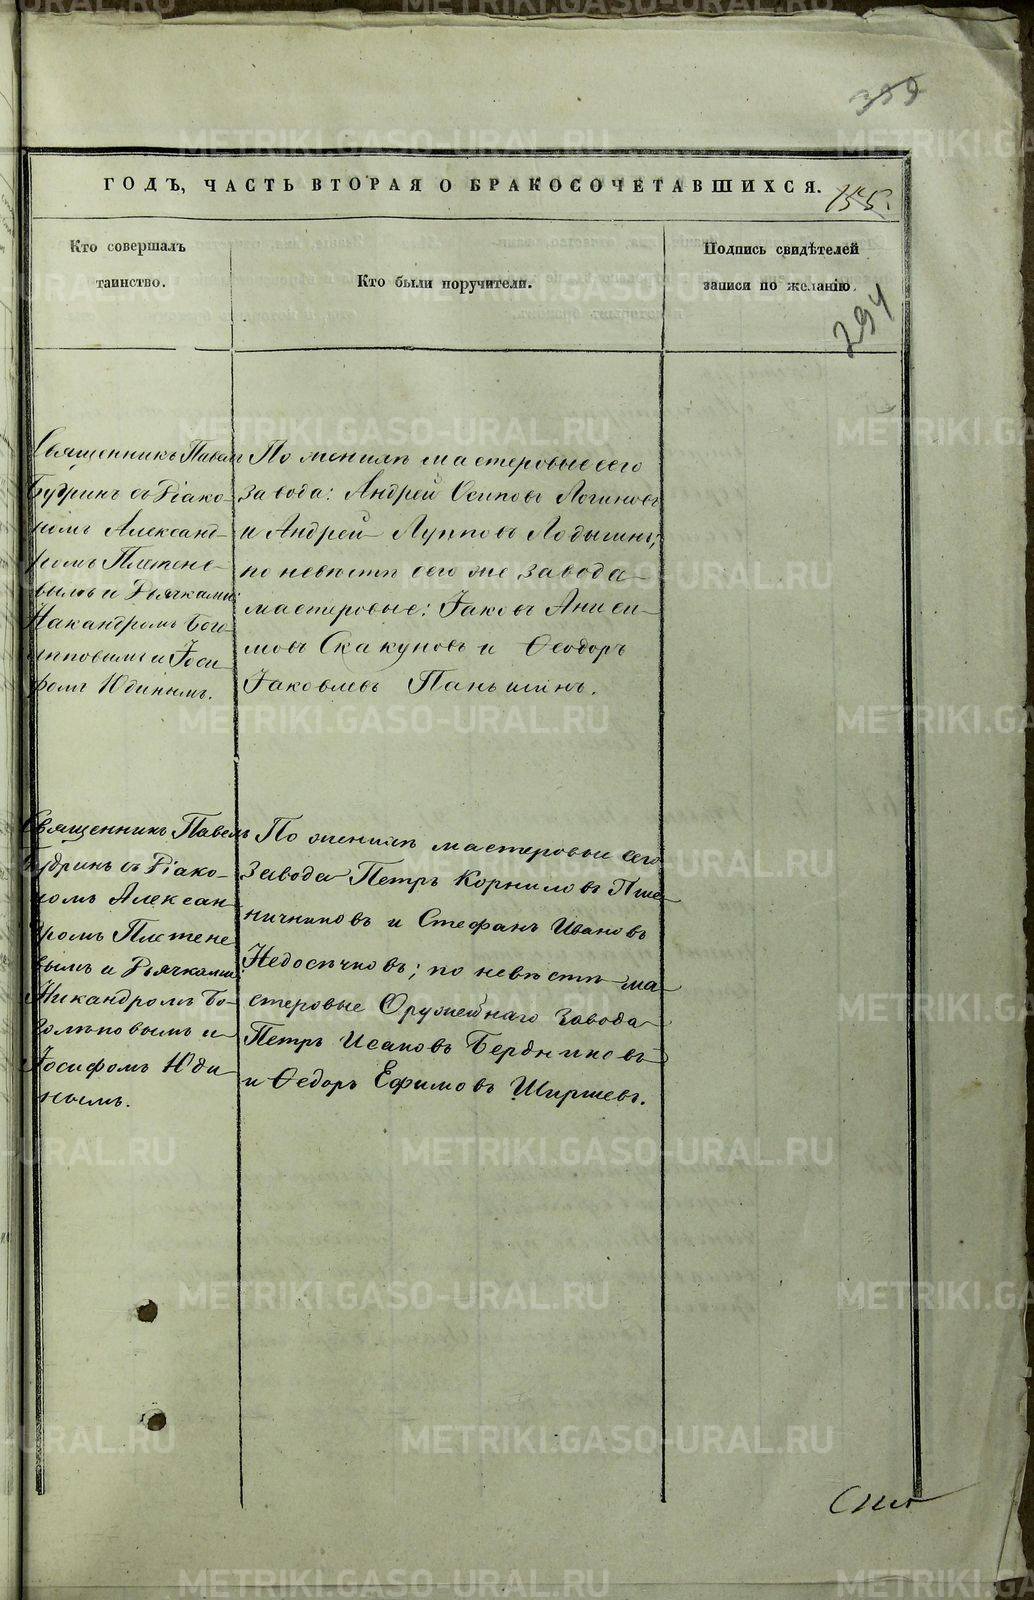 ГОДЪ, ЧАСТЬ ВТОРАЯ О БРАКОСОЧЕТАВШИХСЯ.
155.
Кто совершалъ
таинство.
Кто были поручители.
Подпись свидѣтелей
записи по желанію.
294
Священникъ Павелъ
Будринъ съ Діако-
номъ Александ-
ромъ Плетене-
вымъ и Дьячками:
Никандромъ Бого-
лѣповымъ и Іоси-
фомъ Юдинымъ.
По женихѣ мастеровые сего
завода: Андрей Осиповъ Логиновъ
и Андрей Лупповъ Лодыгинъ;
по невѣстѣ сего же завода
мастеровые: Іаковъ Аниси-
мовъ Скакуновъ и Ѳеодоръ
Іаковлевъ Паньшинъ.
Священникъ Павелъ
Будринъ съ Діако-
номъ Алексан
дромъ Плетене
вымъ и Дьячками:
Никандромъ Бо-
голѣповымъ и
Іосифомъ Юди
нымъ.
По женихѣ мастеровые сего
завода Петръ Корниловъ Пше-
ничниковъ и Стефанъ Ивановъ
Недосѣчковъ; по невѣстѣ ма-
стеровые Оружейнаго завода
Петръ Исаковъ Бердниковъ
и Ѳедоръ Ефимовъ Ширшевъ.
METRIKI.GASO-URAL.RU